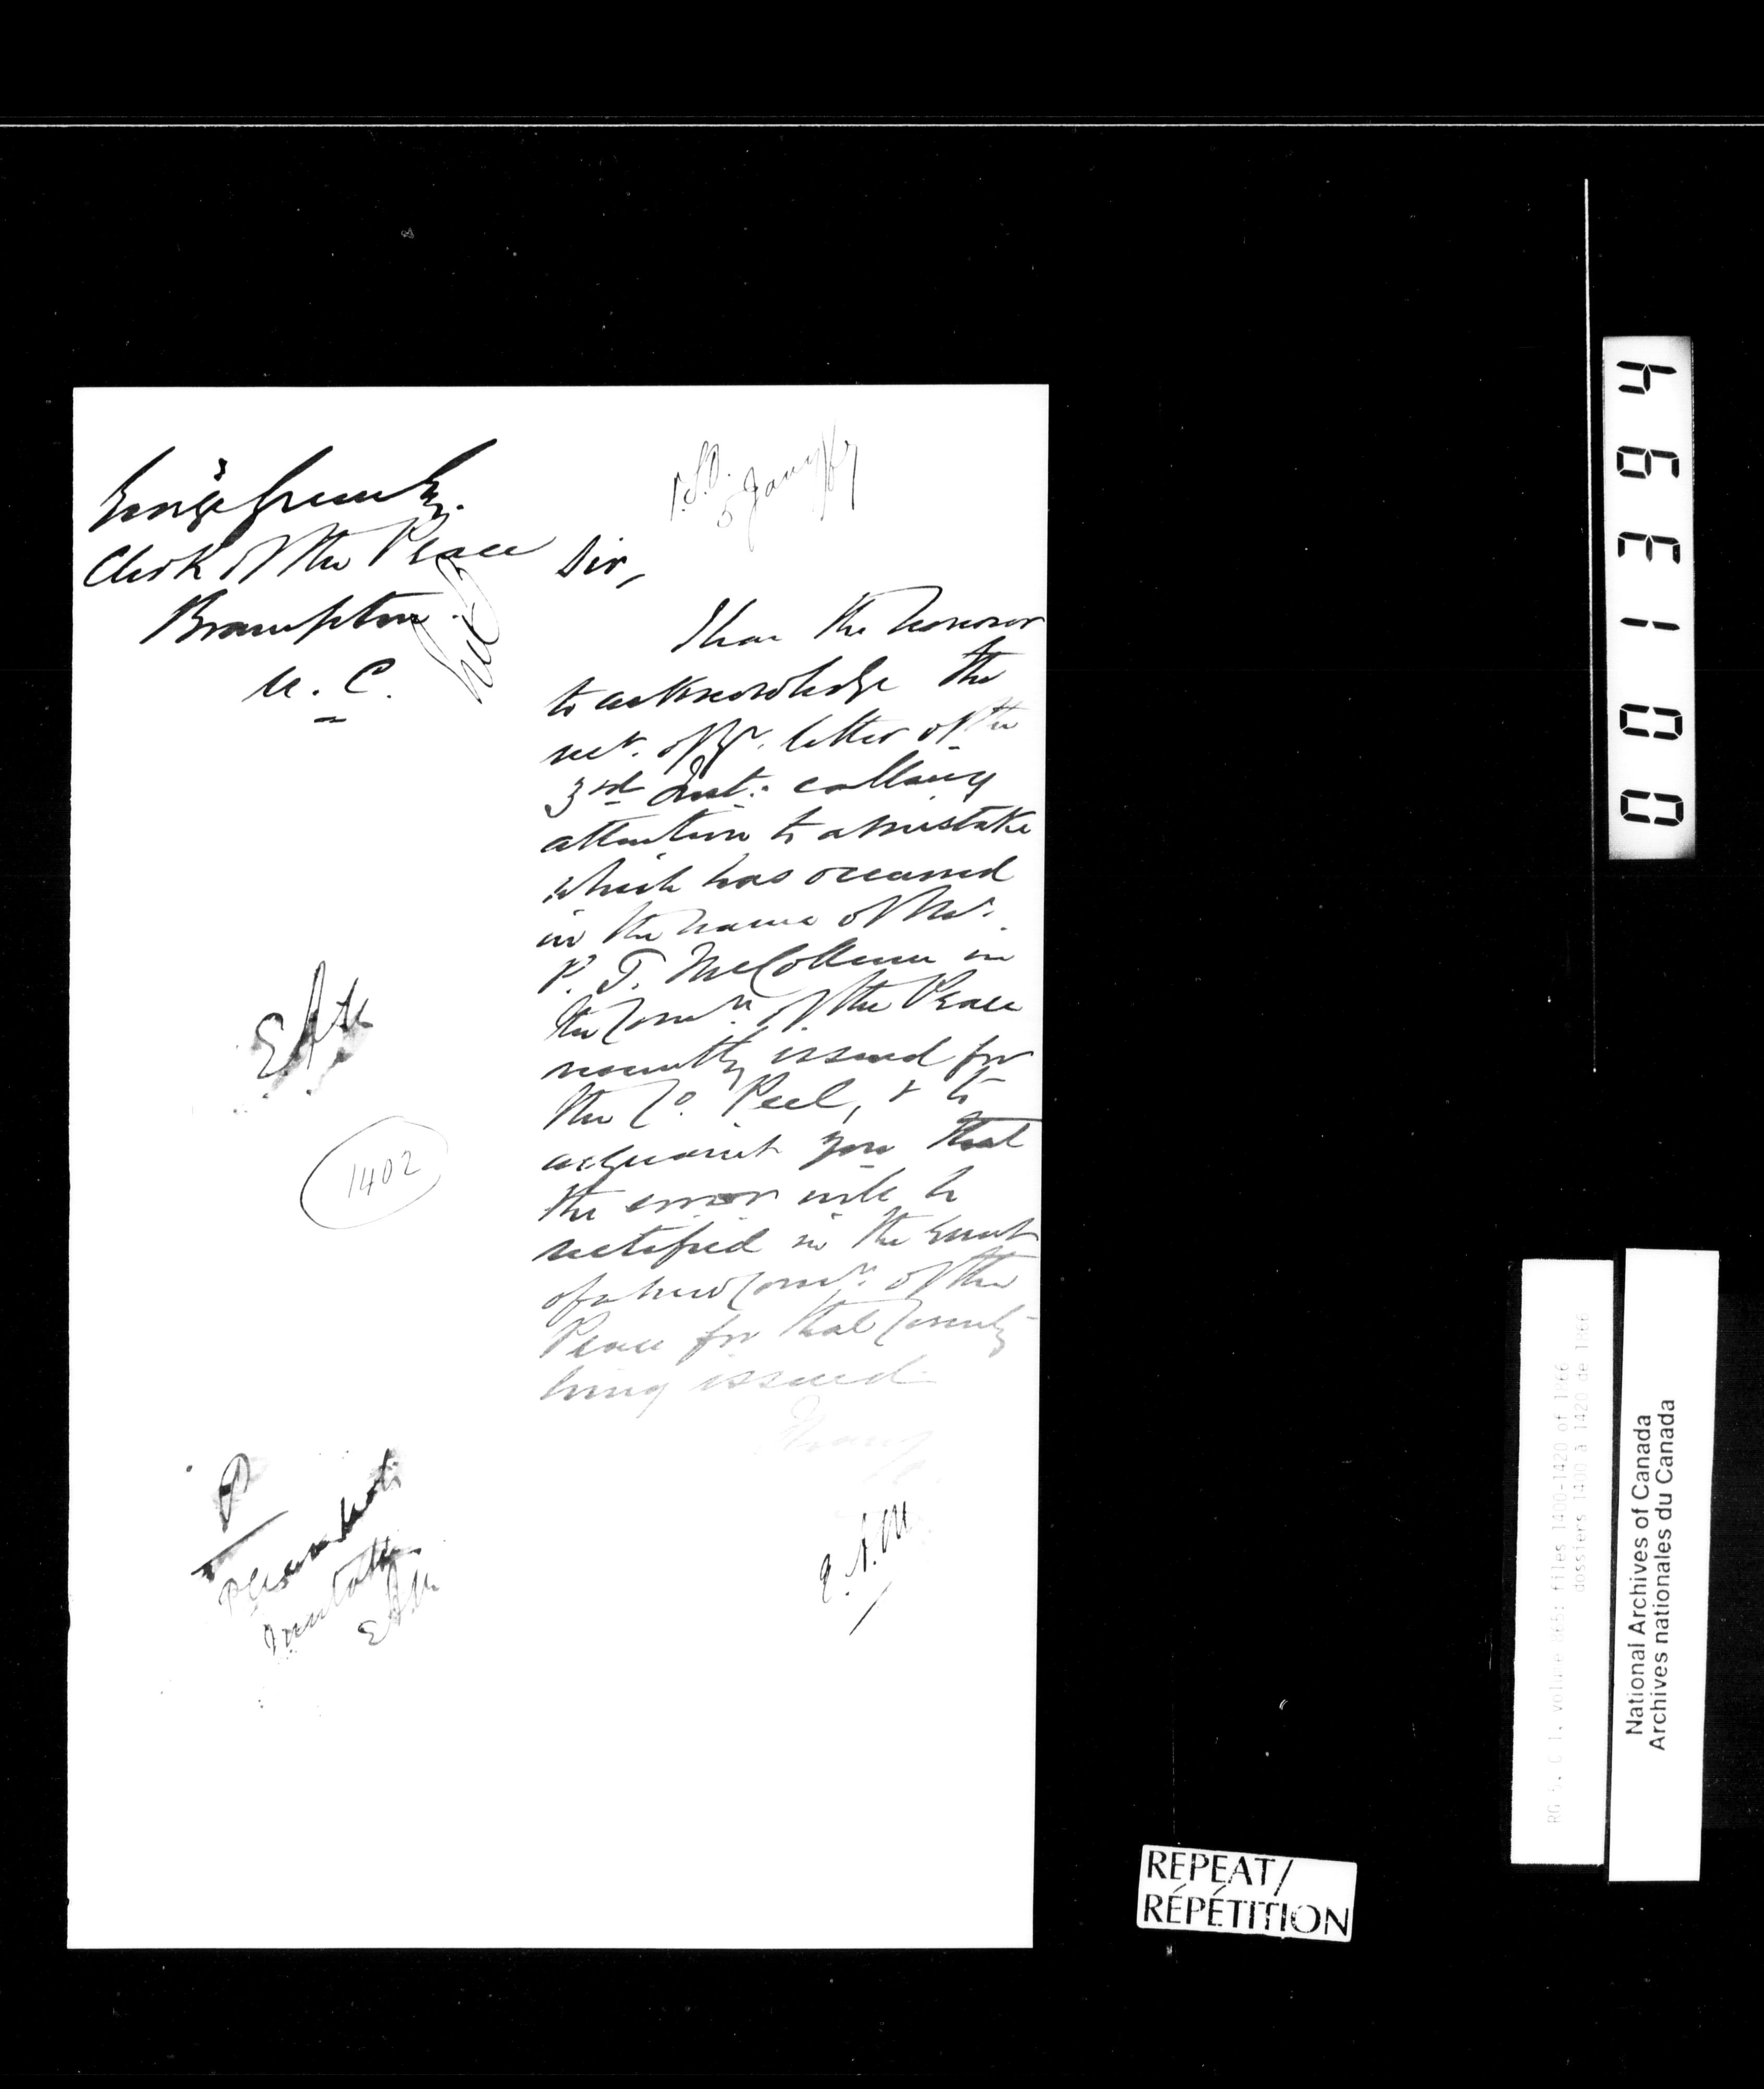 George Green Esq.
Clerk of the Peace
Brampton
U. C.
P.S.O.
5 Jany /67
Sir,
I have the honor
to acknowledge the
rect. of yr. letter of the
3rd Inst: calling
attention to a mistake
which has occurred
in the name of Mr.
P. T. McCollum in
the Comn. of the Peace
recently issued for
the Co. Peel, & to
acquaint you that
the error will be
rectified in the event
of a new Comn. of the
Peace for that County
being issued
E. A. M.
EAM
1402
P
EAM
001 3964
RG 5, C 1, volume 865: files 1400-1420 of 1866
dossiers 1400 à 1420 de 1866
National Archives of Canada
Archives nationales du Canada
REPEAT/
RÉPÉTITION